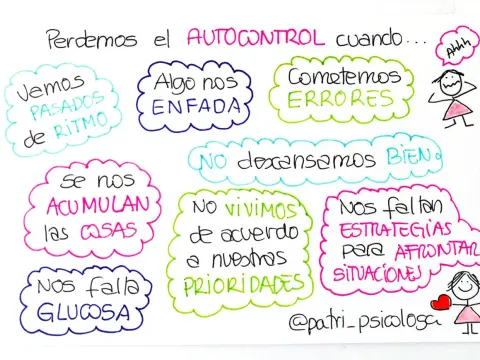 Perdemos el AUTOCONTROL cuando...
Ahhh
Vamos
PASADOS
de RITMO
Algo nos
ENFADA
Cometemos
ERRORES
NO descansamos BIEN.
Se nos
ACUMULAN
las COSAS
NO VIVIMOS
de acuerdo
a nuestras
PRIORIDADES
Nos faltan
ESTRATEGIAS
para AFRONTAR
SITUACIONES
Nos falla
GLUCOSA
@patri_psicologa